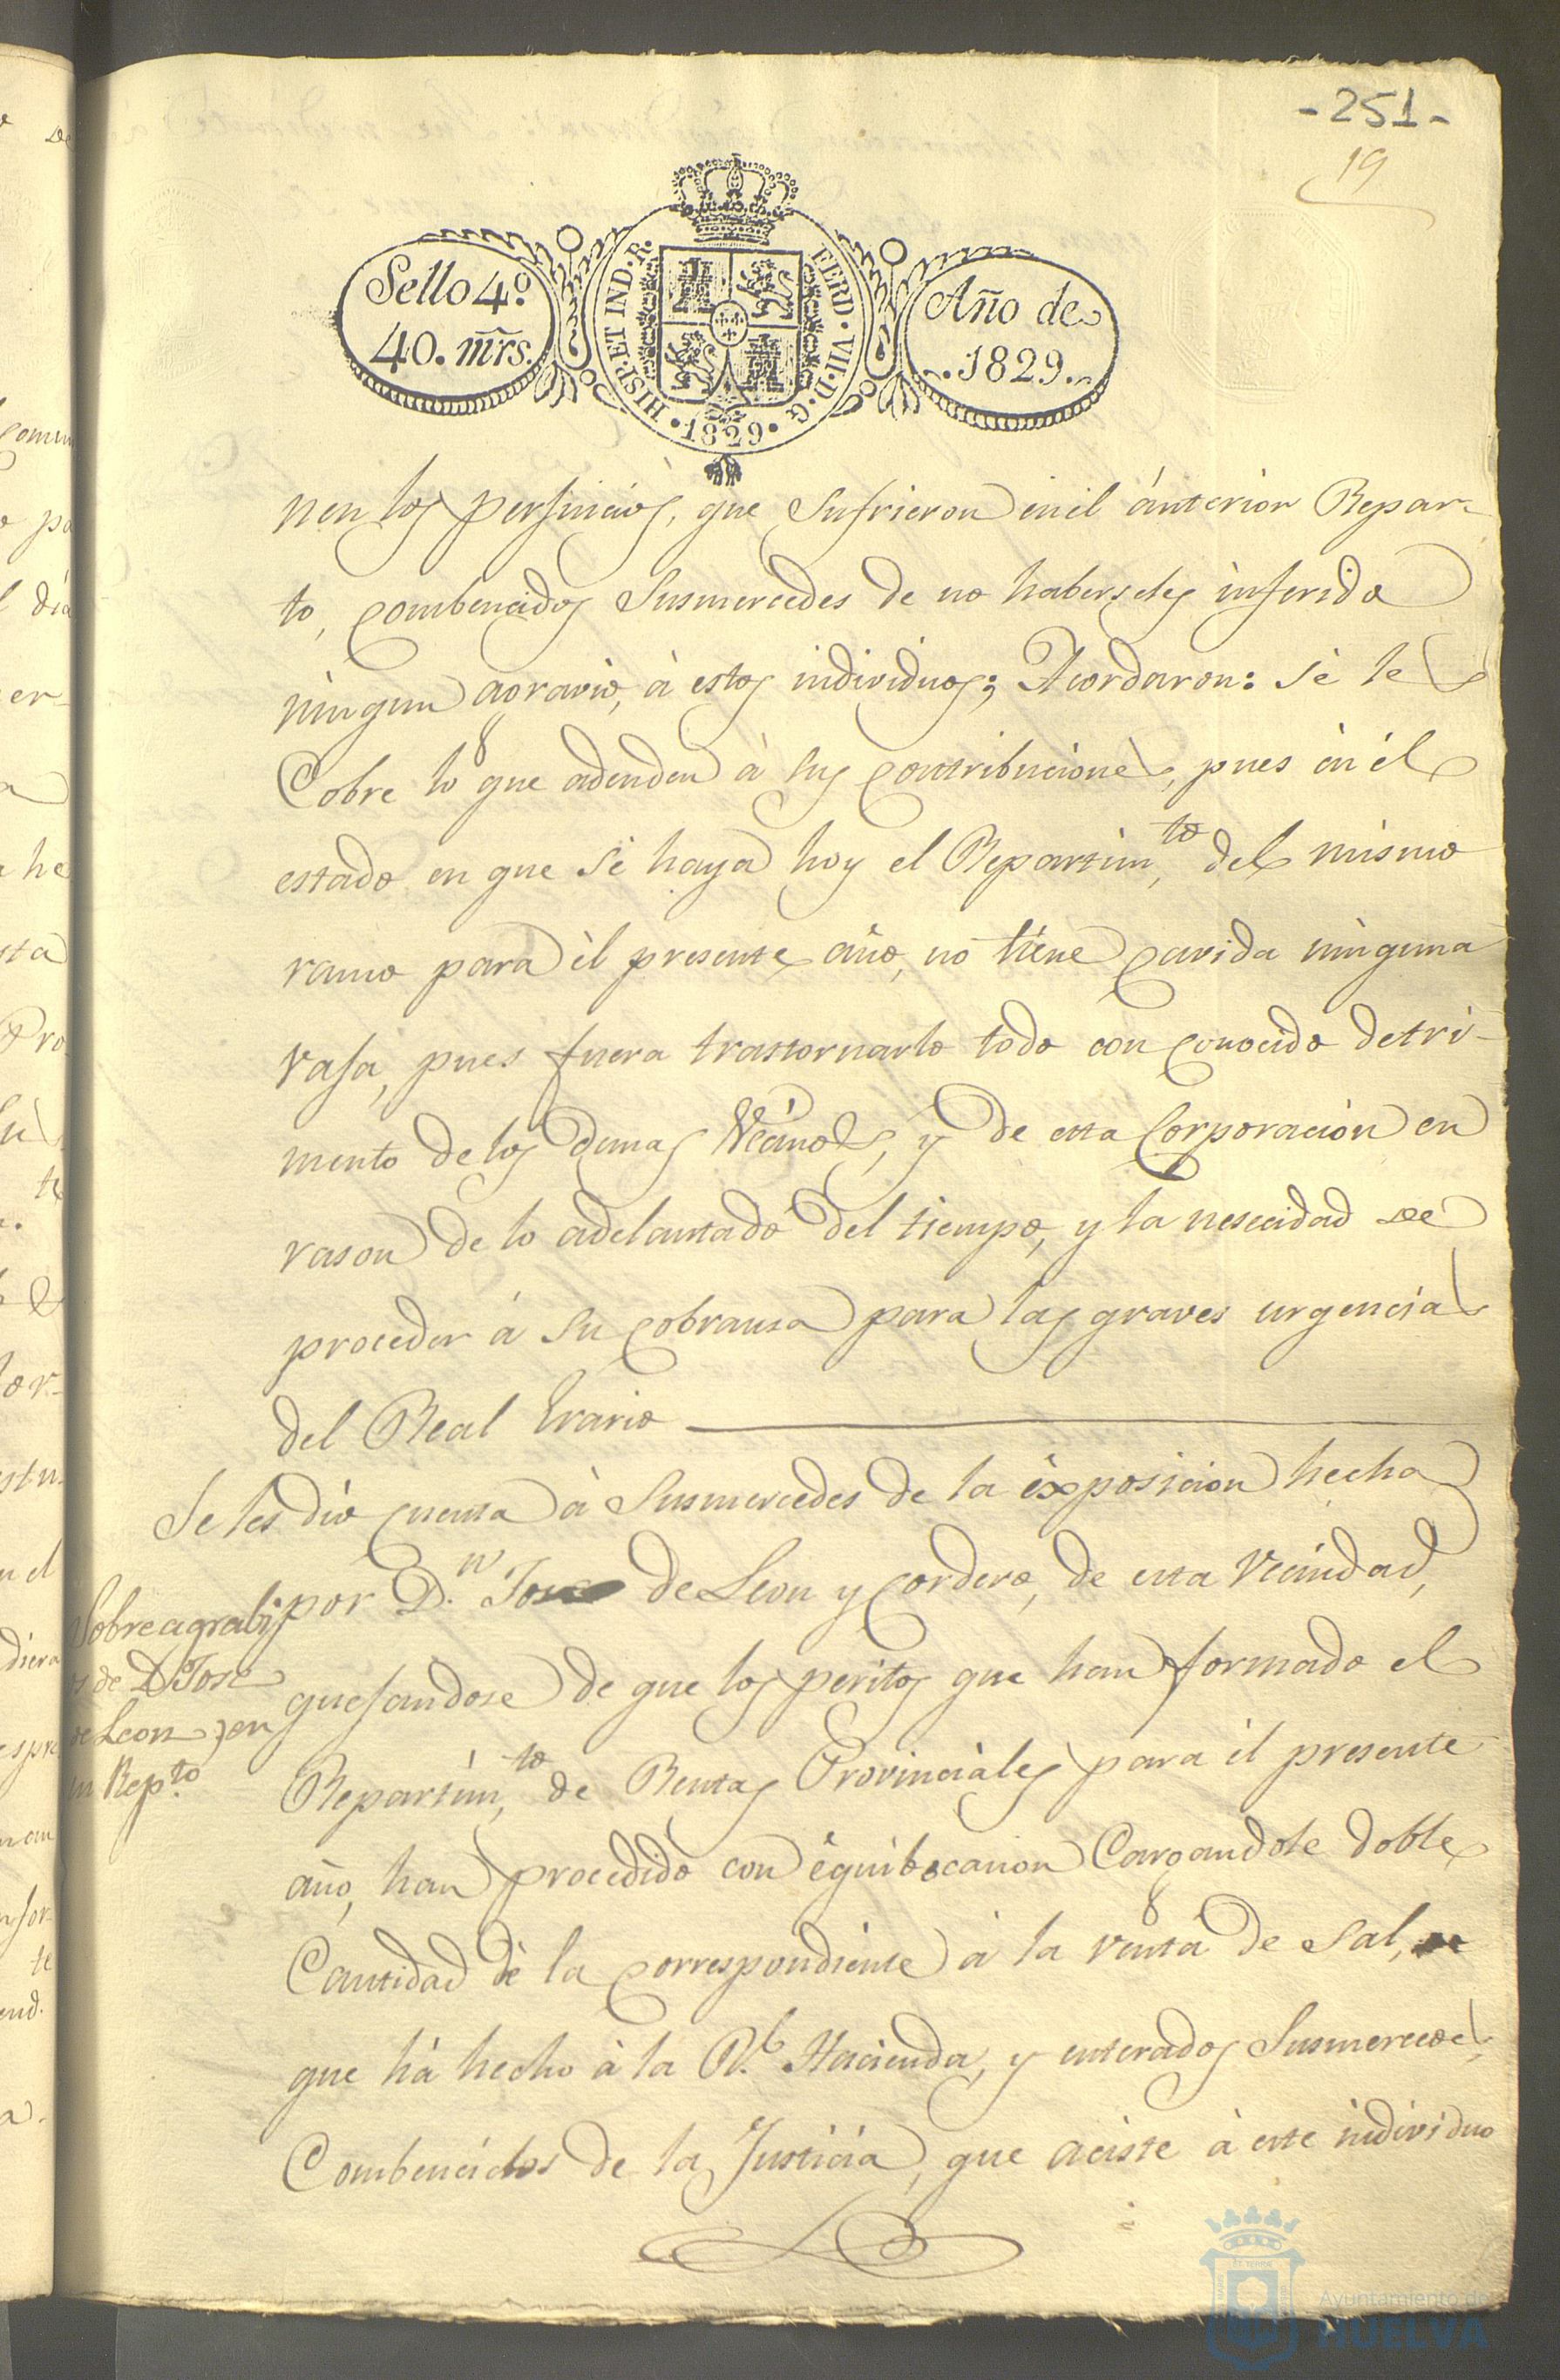 -251-
19
Sello 4º
40. mrs.
HISP. ET IND. R.
FERD. VII. D. G.
1829
Año de
1829
nen los persuicios, que Sufrieron en el ánterior Repar-
to, combencidos Susmercedes de no haberseles inferido
ningun agravio, à estos individuos; Acordaron: sè les
Cobre lo que adeuden à sus contribuciones, pues én él
estado en que sè haya hoy el Repartim,to del mismo
ramo para él presente año, no tiene cavida ninguna
vaja, pues fuera trastornarlo todo con conocido detri-
mento de los demas Vecinos, y de esta Corporacion en
rason de lo adelantado del tiempo, y la nesecidad de
proceder á su cobransa para las graves urgencias
del Real Erario
Se les dio cuenta à Susmercedes de la éxposicion hecha
por D.n Jose de Leon y Cordero, de esta Vecindad,
Sobre agrabi
os de D Jose
de Leon, en
un Rep.to
quejandose de que los peritos que han formado el
Repartim,to de Rentas Provinciàles para él presente
año, han procedido con équibocacion Cargandole doble
Cantidad dè la correspondiente à la venta de sal,
que hà hecho à la R.l Hacienda, y enterados Susmercedes,
Combencidos de la Justicia, que aciste à este individuo
Ayuntamiento de
HUELVA